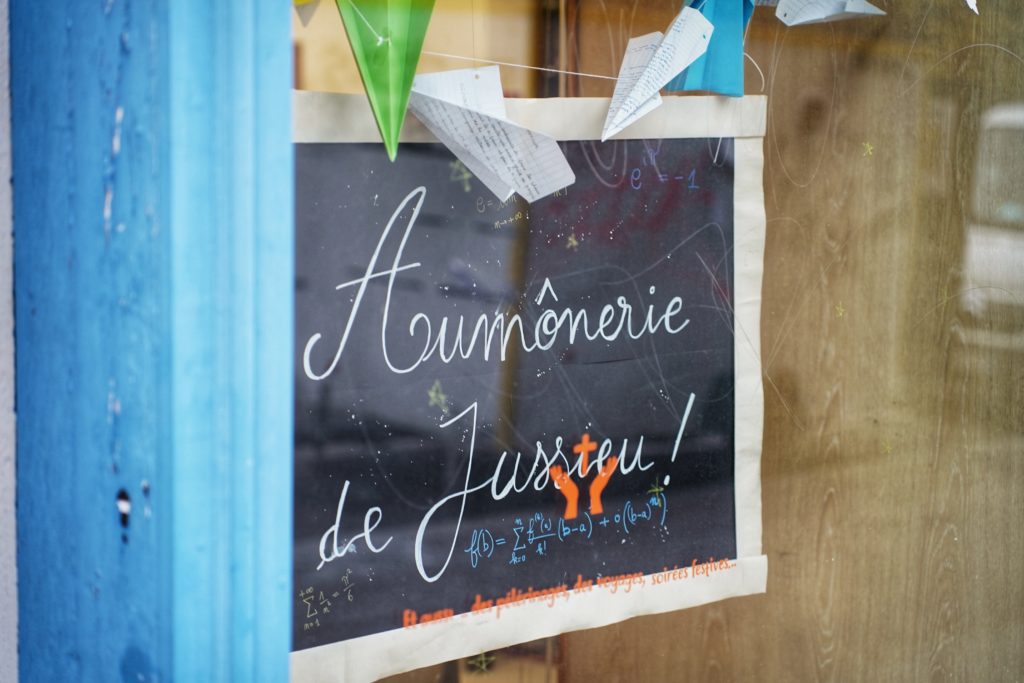 e^iπ = -1
e = lim
n→+∞
Aumônerie
de Jussieu !
f(b) = ∑ f^(k)(a)/k! (b-a) + o((b-a)^n)
n
k=0
+∞
∑ 1/n² = π²/6
n=1
des pélerinages, des voyages, soirées festives...